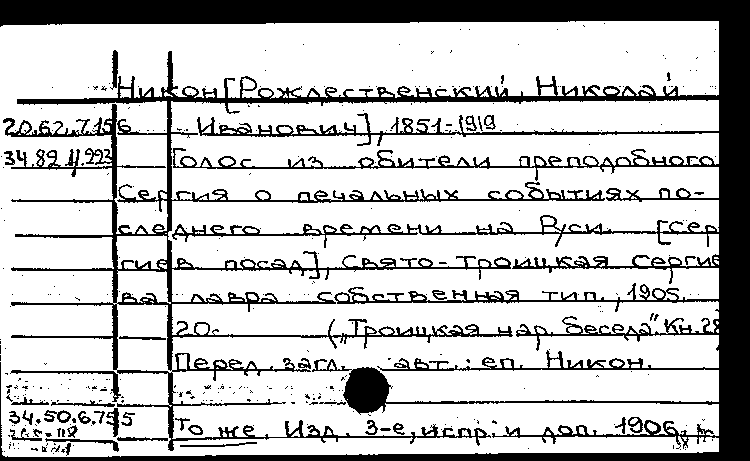 Никон [Рождественский, Николай
20.62.7.156 Иванович], 1851-1919
34.89.11.223 Голос из обители преподобного
Сергия о печальных событиях по-
следнего времени на Руси. [Сер
гиев посад], Свято-Троицкая Сергие
ва лавра собственная тип., 1905.
20. („Троицкая нар. беседа". Кн. 28
Перед загл. авт.: еп. Никон.
34.50.6.755
То же. Изд. 3-е, испр. и доп. 1906